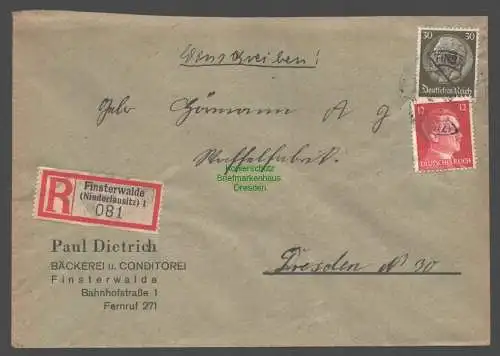 Einschreiben!
30 30
Deutsches Reich
Gebr. Hörmann A G
12 12
DEUTSCHES REICH
Waffelfabrik.
Kopierschutz
Briefmarkenhaus
Dresden
R
Finsterwalde
(Niederlausitz) 1
081
Paul Dietrich
BÄCKEREI u. CONDITOREI
Finsterwalde
Bahnhofstraße 1
Fernruf 271
Dresden N 30